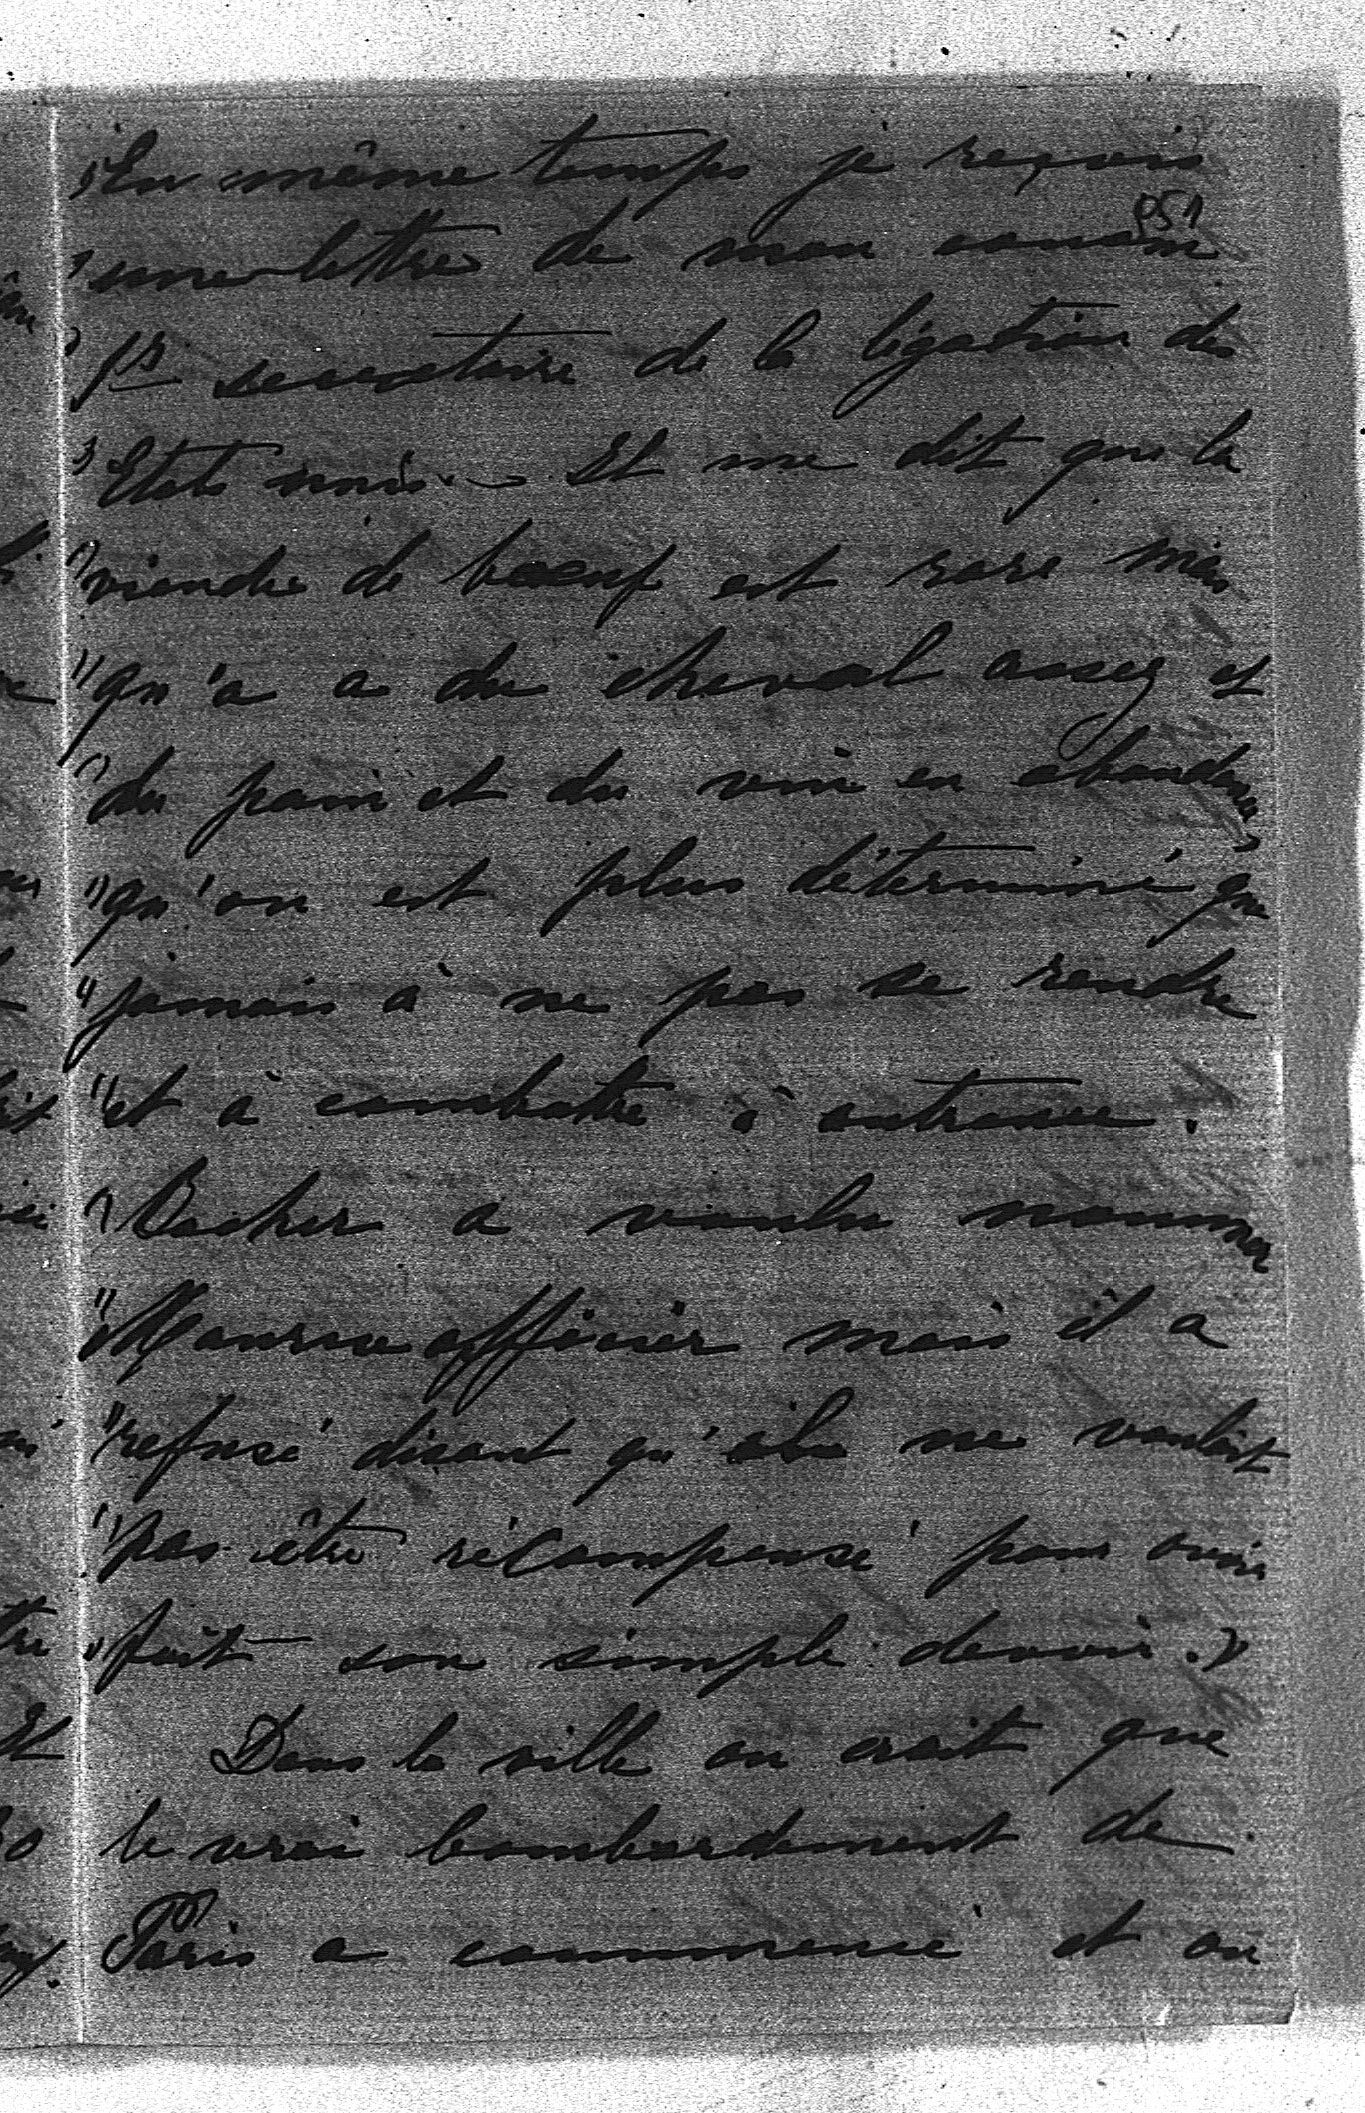 "En même temps je reçois
951
"une lettre de mon cousin
"1er secretaire de la légation des
"Etats unis. — Il me dit que la
"viande de boeuf est rare mais
"qu'a a du cheval assez et
"du pain et du vin en abondance
"qu'on est plus déterminé que
"jamais à ne pas se rendre
"et à combattre à outrance.
"Becher a voulu nommer
"Maurice officier mais il a
"refusé disant qu'il ne voulait
"pas être récompensé pour avoir
"fait son simple devoir."
Dans la ville on croit que
le vrai bombardement de
Paris a commencé et on